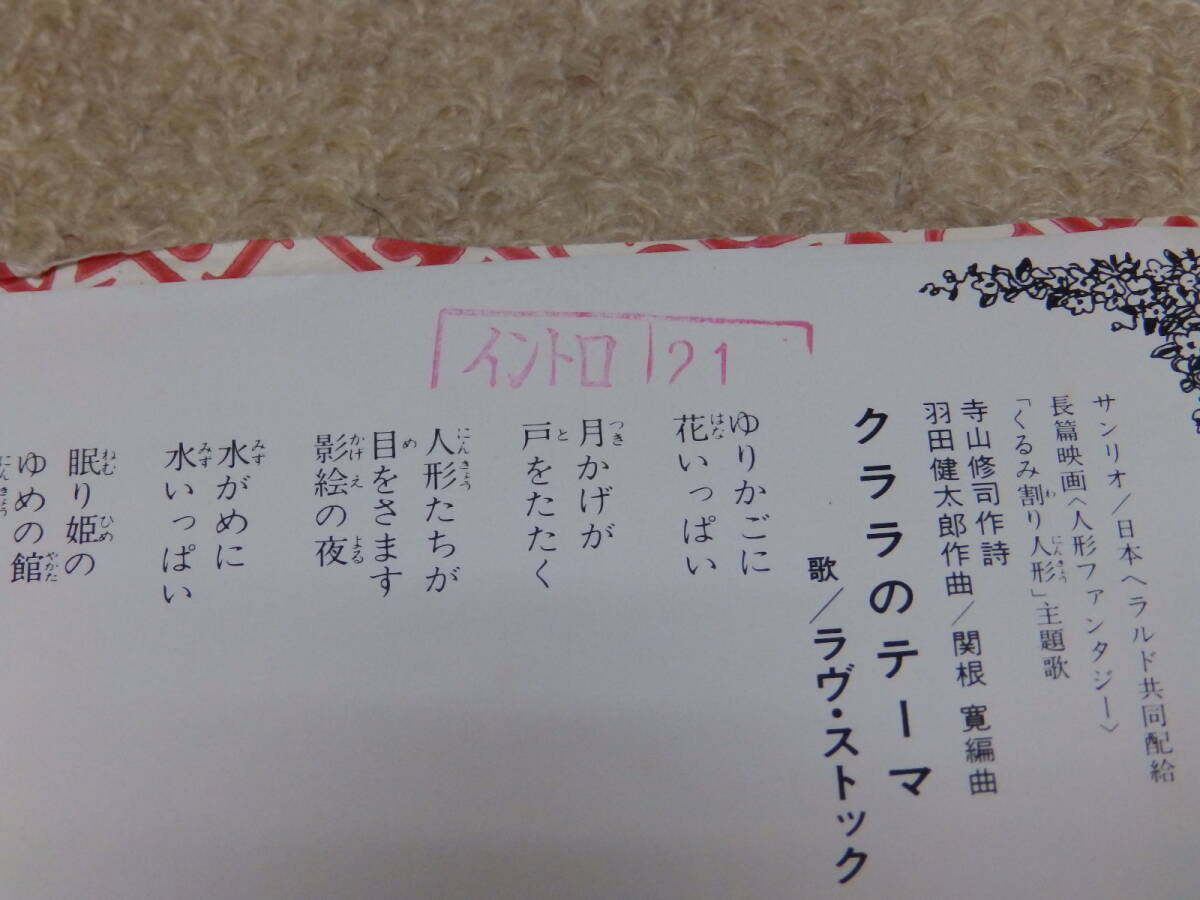 イントロ 21
サンリオ/日本ヘラルド共同配給
長篇映画〈人形ファンタジー〉
「くるみ割り人形」主題歌
寺山修司作詩
羽田健太郎作曲/関根 寛編曲
クララのテーマ
歌/ラヴ・ストック
ゆりかごに
花いっぱい
月かげが
戸をたたく
人形たちが
目をさます
影絵の夜
水がめに
水いっぱい
眠り姫の
ゆめの館